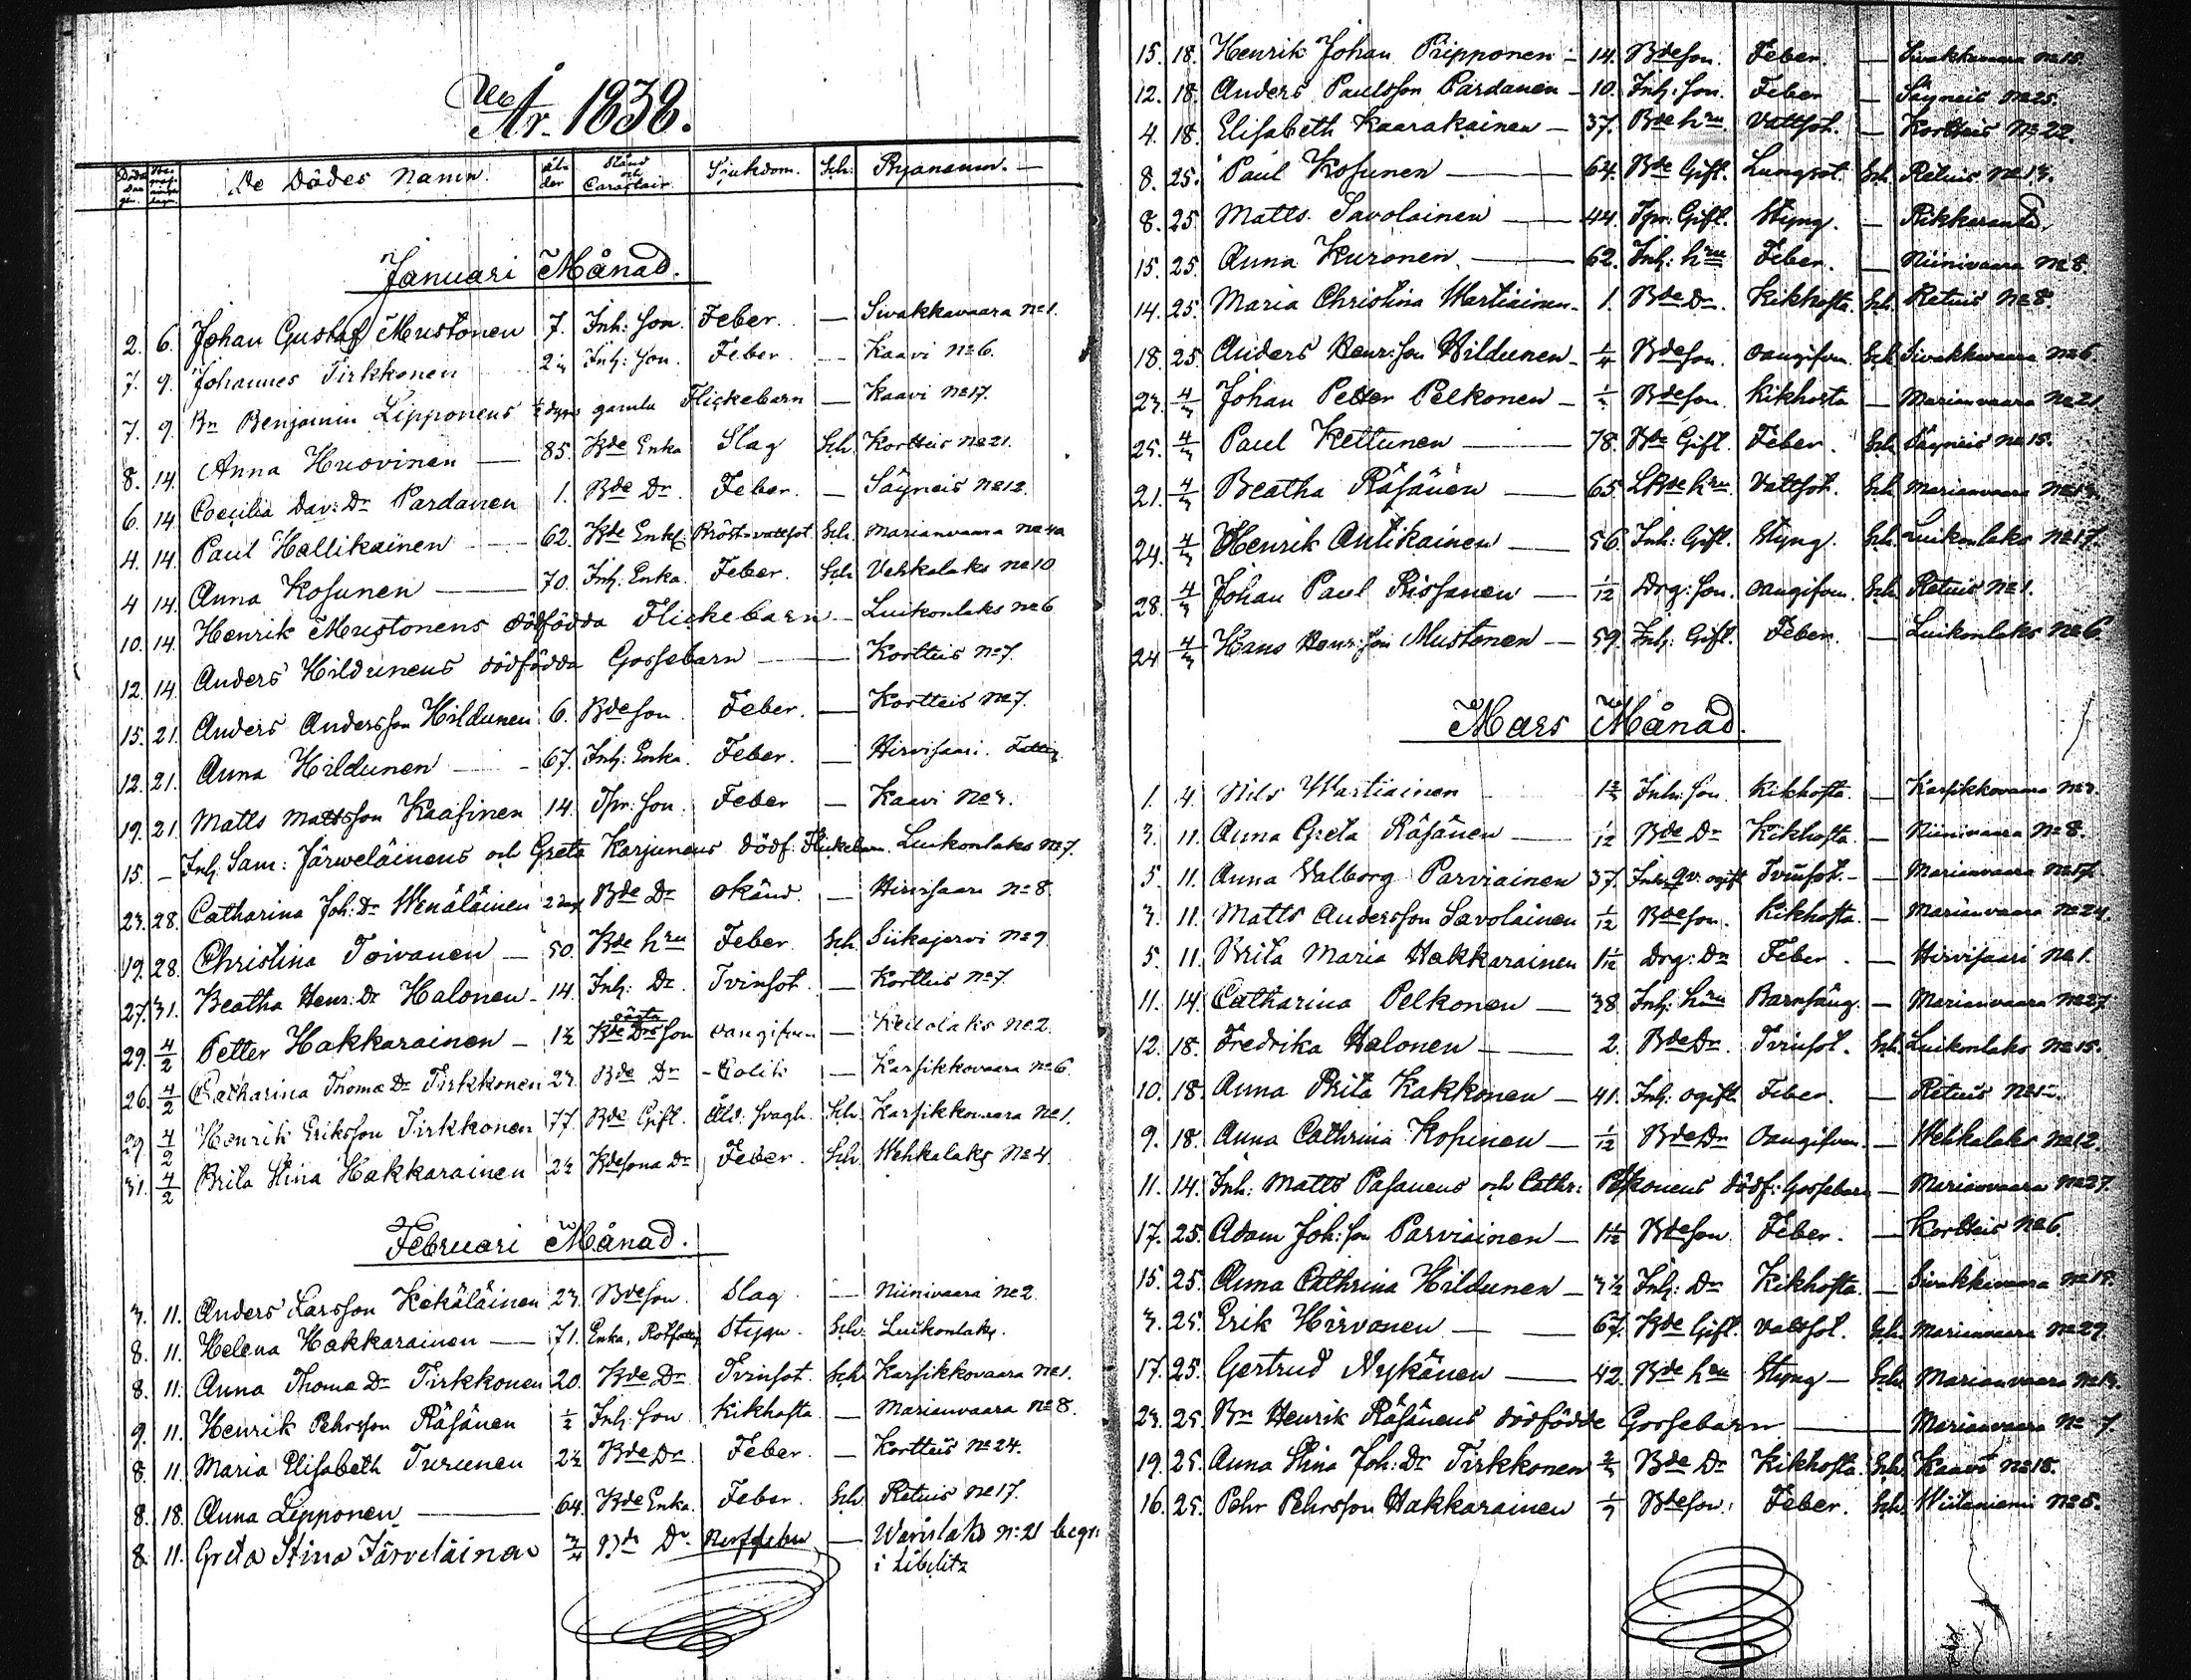 År 1838.
Döds dagen. Begrafningsdagen. De Dödes Namn. Ålder Stånd och Caractair. Sjukdom. Sch. Byanamn. —
Januari Månad.
2. 6. Johan Gustaf Mustonen 7. Inh: Son. Feber. — Sivakkavaara No 1.
7. 9. Johannes Tirkkonen Inh: Son. Feber. — Kaavi No 6.
7. 9. Bn Benjamin Lipponens gamla Flickebarn — Kaavi No 17.
8. 14. Anna Huovinen — 85. Bde Enka Slag Sch. Kortteis No 21.
6. 14. Coecilia Dav: Dr Pardanen 1. Bde Dr. Feber. — Säyneis No 12.
4. 14. Paul Hallikainen — 62. Bde Enkl. Bröst-vattsot Sch. Marianvaara No
4 14. Anna Kosunen — 70. Inh. Enka. Feber. Sch Vehkalaks No 10
10. 14. Henrik Mustonens dödfödda Flickebarn — Luikonlaks No 6
12. 14. Anders Hildunens dödfödda Gossebarn — Kortteis No 7.
15. 21. Anders Andersson Hildunen 6. Bde Son. Feber. — Kortteis No 7.
12. 21. Anna Hildunen — 67. Inh: Enka. Feber. — Hirvisaari.
19. 21. Matts Mattsson Kaasinen 14. Tpr: Son. Feber — Kaavi No 3.
15. — Inh. Sam: Järweläinens och Greta Karjunens dödf: Flickebarn. Luikonlaks No 7.
23. 28. Catharina Joh: Dr Wenäläinen Bde Dr okänd. — Hirvisaari No 8.
19. 28. Christina Toivanen — 50. Bde hru Feber. Sch. Siikajervi No 9
27. 31. Beatha Henr: Dr Halonen — 14. Inh: Dr. Tvinsot. — Kortteis No 7.
29. 4/2 Petter Hakkarainen — 1½ Bde Drs oäkta Son oangifven — Keilolaks No 2.
26. 4/2 Catharina Thoma Dr Tirkkonen 23. Bde Dr Colik — Karsikkovaara No 6.
29. 4/2 Henrik Eriksson Tirkkonen 77. Bde Gift. Åld. svagh. Sch. Karsikkovaara No 1.
31. 4/2 Brita Stina Hakkarainen 2½ Bdesona Dr Feber. Sch. Wehkalaks No 4.
Februari Månad.
3. 11. Anders Larsson Kekäläinen 23. Bdeson. Slag. — Niinivaara No 2.
8. 11. Helena Hakkarainen — 71. Enka, Rotfattig Stygn. Sch. Luikonlaks.
8. 11. Anna Thoma Dr Tirkkonen 20. Bde Dr Tvinsot. Sch. Karsikkovaara No 1.
9. 11. Henrik Pehrsson Räsänen ½ Inh: Son. Kikhosta — Marianvaara No 8.
8. 11 Maria Elisabeth Turunen 2½ Bde Dr. Feber. — Kortteis No 24.
8. 18. Anna Lipponen — 64. Bde Enka. Feber. Sch. Retuis No 17.
8. 11. Greta Stina Järveläinen 3/4 Bde Dr Nerffeber — Warislaks No 21 begr: i Libelitz
15. 18. Henrik Johan Pripponen — 14. Bdeson. Feber. — Sivakkavaara No 15.
12. 18. Anders Paulsson Pardanen — 10. Inh: Son. Feber — Säyneis No 25.
4. 18. Elisabeth Kaarakainen — 37. Bde hru Vattsot. — Kortteis No 22.
8. 25. Paul Kosunen — 64. Bde Gift. Lungsot. Sch. Retuis No 13.
8. 25. Matts Savolainen — 44. Tpr: Gift. Styng. — Rikkaranta.
15. 25. Anna Kuronen. — 62. Inh: hru Feber. — Niinivaara No 8.
14. 25. Maria Christina Wartiainen — 1. Bde Dr. Kikhosta. Sch. Retuis No 8.
18. 25. Anders Henr: Son Hildunen — ¼ Bdeson. oangifven. Sch. Sivakkavaara No 6.
23. 4/3 Johan Petter Pelkonen — Bdeson. Kikhosta — Marianvaara No 21.
25. 4/3 Paul Kettunen — 78. Bde Gift. Feber. Sch. Säyneis No 15.
21. 4/3 Beatha Räsänen — 65 LBde hru. Vattsot. Sch. Marianvaara No
24. 4/3 Henrik Antikainen — 56. Inh: Gift. Styng. Sch. Luikonlaks No 17.
28. 4/3 Johan Paul Rissanen — 1/12 Drg: Son. oangifven. Sch. Retuis No 1.
24. 4/3 Hans Henr: Son Mustonen — 59. Inh: Gift. Feber. — Luikonlaks No 6.
Mars Månad.
1. 4. Nils Wartiainen Inh: Son. Kikhosta. — Karsikkovaara No 3.
3. 11. Anna Greta Räsänen — 1/12 Bde Dr Kikhosta. — Niinivaara No 8.
5. 11. Anna Valborg Parviainen 37. Inhs qv: ogift Tvinsot. — Marianvaara No
3. 11. Matts Andersson Savolainen 1/12 Bdeson. Kikhosta. — Marianvaara No 24.
5. 11. Brita Maria Hakkarainen 1 1/12 Drg: Dr Feber. — Hirvisaari No 1.
11. 14. Catharina Pelkonen — 38. Inh: hru Barnsäng. — Marianvaara No 27.
12. 18. Fredrika Halonen — 2. Bde Dr. Tvinsot. Sch. Luikonlaks No 15.
10. 18. Anna Brita Kakkonen — 41. Inh: ogift. Feber. — Retuis No
9. 18. Anna Cathrina Kosinen — 1/12 Bde Dr Oangifven. — Wehkalaks No 12.
11. 14. Inh: Matts Pasanens och Cathr: Pelkonens dödf: Gossebarn — Marianvaara No 27
17. 25. Adam Joh: Son Parviainen — Bdeson Feber. — Kortteis No 6.
15. 25. Anna Cathrina Hildunen — 3½ Inh: Dr Kikhosta. — Sivakkavaara No 18.
3. 25. Erik Hirvonen — 67. Bde Gift. Vattsot. Sch. Marianvaara No 29.
17. 25. Gertrud Nykänen — 42. Bde hru Styng — Sch. Marianvaara No 13.
23. 25. Bn Henrik Räsänens dödfödde Gossebarn — Marianvaara No 7.
19. 25. Anna Stina Joh: Dr Tirkkonen 2/3 Bde Dr Kikhosta. Sch. Kaavi No 18.
16. 25. Pehr Pehrsson Hakkarainen Bdeson. Feber. Sch. Wiitaniemi No 5.